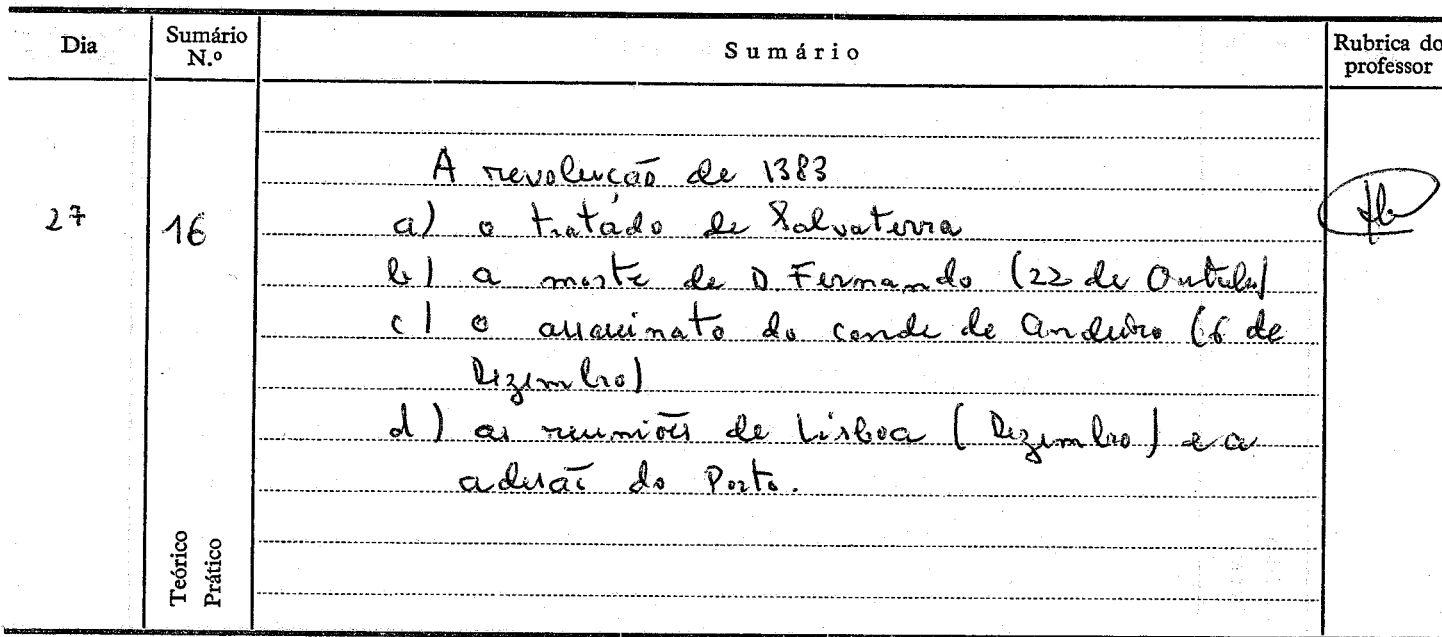 Dia
Sumário N.º
Sumário
Rubrica do professor
27
16
A revolução de 1383
a) o tratado de Salvaterra
b) a morte de D Fernando (22 de Outubro)
c) o assassinato do conde de Andeiro (6 de
Dezembro)
d) as reuniões de Lisboa (Dezembro) e a
adesão do Porto.
Teórico
Prático